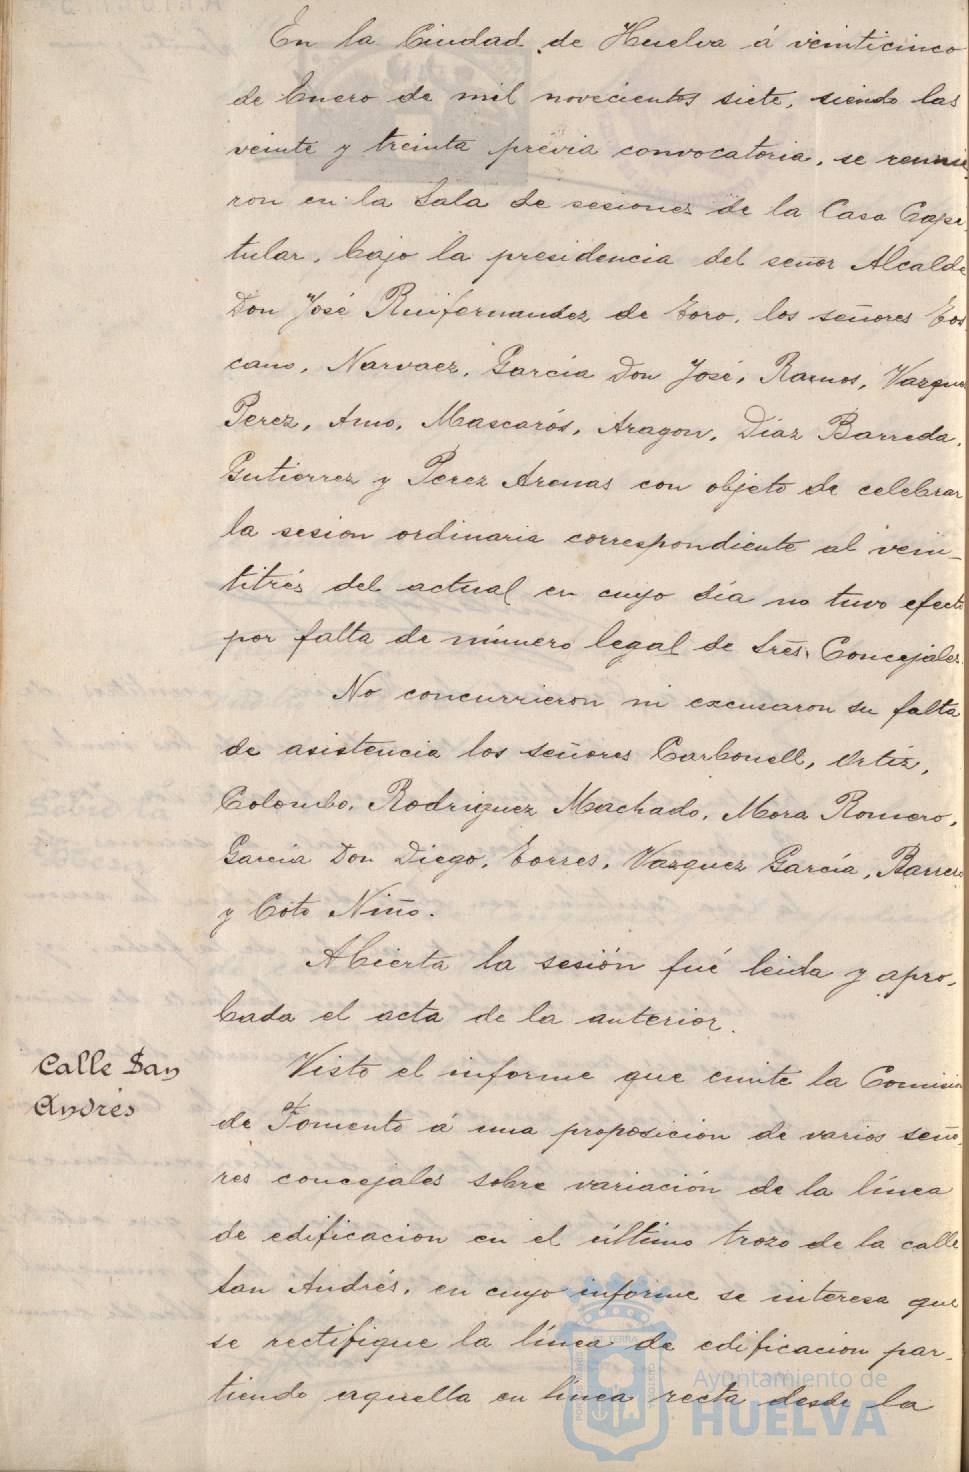 En la Ciudad de Huelva á veinticinco
de Enero de mil novecientos siete, siendo las
veinte y treinta previa convocatoria, se reunie
ron en la Sala de sesiones de la Casa Capi
tular, bajo la presidencia del señor Alcalde
Don José Ruifernandez de Toro, los señores Tos
cano, Narvaez, García Don José, Ramos, Vazquez
Perez, Amo, Mascarós, Aragon, Díaz Barreda,
Gutierrez y Perez Arenas con objeto de celebrar
la sesion ordinaria correspondiente al vein-
titrés del actual en cuyo día no tuvo efecto
por falta de número legal de Sres. Concejales.
No concurrieron ni excusaron su falta
de asistencia los señores Carbonell, Ortiz,
Colombo, Rodriguez Machado, Mora Romero,
García Don Diego, Torres, Vazquez García, Barrero
y Coto Niño.
Abierta la sesión fué leida y apro-
bada el acta de la anterior.
Calle San
Andrés
Visto el informe que emite la Comision
de Fomento á una proposición de varios seño
res concejales sobre variación de la línea
de edificacion en el último trozo de la calle
San Andrés, en cuyo informe se interesa que
se rectifique la línea de edificacion par-
tiendo aquella en línea recta desde la
Ayuntamiento de
HUELVA